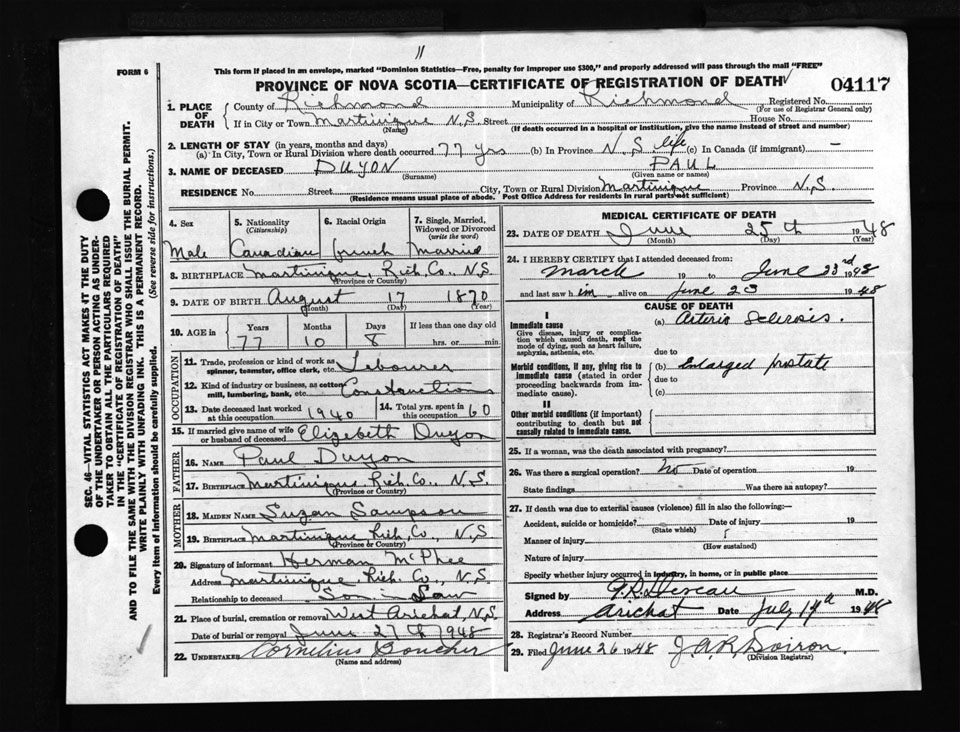 11
FORM 6
This form if placed in an envelope, marked "Dominion Statistics—Free, penalty for improper use $300," and properly addressed will pass through the mail "FREE"
PROVINCE OF NOVA SCOTIA—CERTIFICATE OF REGISTRATION OF DEATH
04117
SEC. 46—VITAL STATISTICS ACT MAKES IT THE DUTY
OF THE UNDERTAKER OR PERSON ACTING AS UNDER-
TAKER TO OBTAIN ALL THE PARTICULARS REQUIRED
IN THE "CERTIFICATE OF REGISTRATION OF DEATH"
AND TO FILE THE SAME WITH THE DIVISION REGISTRAR WHO SHALL ISSUE THE BURIAL PERMIT.
WRITE PLAINLY WITH UNFADING INK. THIS IS A PERMANENT RECORD.
Every item of Information should be carefully supplied. (See reverse side for instructions.)
1. PLACE OF DEATH
County of Richmond Municipality of Richmond Registered No.
(For use of Registrar General only)
If in City or Town Martinique N.S. Street House No.
(Name) (If death occurred in a hospital or institution, give the name instead of street and number)
2. LENGTH OF STAY (in years, months and days)
(a) In City, Town or Rural Division where death occurred 77 yrs (b) In Province N.S. life (c) In Canada (if immigrant) —
3. NAME OF DECEASED DUYON PAUL
(Surname) (Given name or names)
RESIDENCE No. Street City, Town or Rural Division Martinique Province N.S.
(Residence means usual place of abode. Post Office Address for residents in rural parts not sufficient)
4. Sex 5. Nationality (Citizenship) 6. Racial Origin 7. Single, Married, Widowed or Divorced (write the word)
Male Canadian french Married
8. BIRTHPLACE Martinique, Rich. Co., N.S.
(Province or Country)
9. DATE OF BIRTH August 17 1870
(Month) (Day) (Year)
10. AGE in Years Months Days If less than one day old
77 10 8 hrs. or min.
OCCUPATION
11. Trade, profession or kind of work as spinner, teamster, office clerk, etc. Labourer
12. Kind of industry or business, as cotton mill, lumbering, bank, etc. Constanction
13. Date deceased last worked at this occupation 1940 14. Total yrs. spent in this occupation 60
15. If married give name of wife or husband of deceased Elizebeth Duyon
FATHER
16. NAME Paul Duyon
17. BIRTHPLACE Martinique Rich. Co., N.S.
(Province or Country)
MOTHER
18. MAIDEN NAME Suzan Sampson
19. BIRTHPLACE Martinique Rich, Co, N.S.
(Province or Country)
20. Signature of informant Herman McPhee
Address Martinique, Rich. Co., N.S.
Relationship to deceased Son in Law
21. Place of burial, cremation or removal West Arichat, N.S.
Date of burial or removal June 27th 1948
22. UNDERTAKER Cornelius Boucher
(Name and address)
MEDICAL CERTIFICATE OF DEATH
23. DATE OF DEATH June 25th 1948
(Month) (Day) (Year)
24. I HEREBY CERTIFY that I attended deceased from:
March 19 to June 23rd 1948
and last saw h im alive on June 23 1948
CAUSE OF DEATH
I
Immediate cause
Give disease, injury or complication which caused death, not the mode of dying, such as heart failure, asphyxia, asthenia, etc.
(a) Arterio Sclerosis.
due to
Morbid conditions, if any, giving rise to immediate cause (stated in order proceeding backwards from immediate cause).
(b) Enlarged prostate
due to
(c)
II
Other morbid conditions (if important) contributing to death but not causally related to immediate cause.
25. If a woman, was the death associated with pregnancy?
26. Was there a surgical operation? No Date of operation 19
State findings Was there an autopsy?
27. If death was due to external causes (violence) fill in also the following:—
Accident, suicide or homicide? Date of injury 19
(State which)
Manner of injury
(How sustained)
Nature of injury
Specify whether injury occurred in industry, in home, or in public place
Signed by M.D.
Address Arichat Date July 14th 1948
28. Registrar's Record Number
29. Filed June 26 1948 J.A.R. Doiron
(Division Registrar)